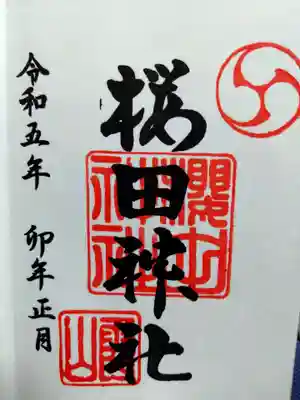 櫻田神社
令和五年 卯年正月